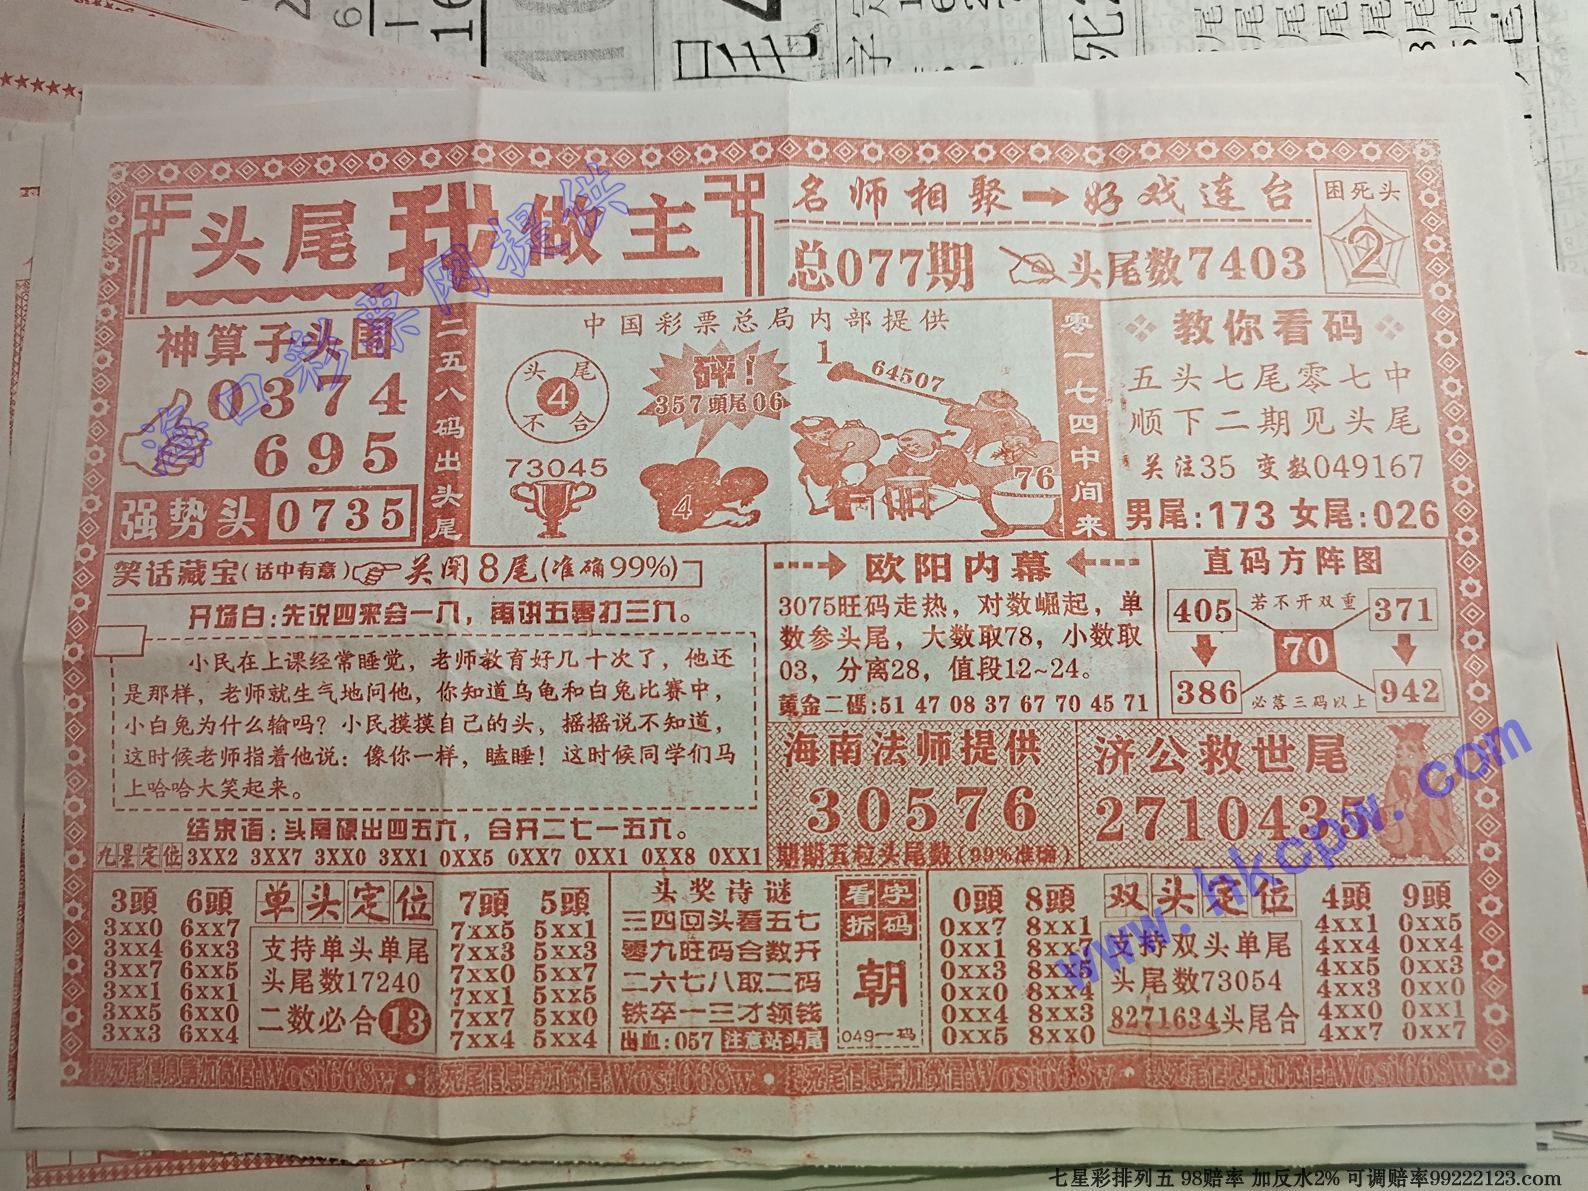 头尾我做主
名师相聚→好戏连台
总077期
头尾数7403
困死头
2
神算子头围
0374
695
强势头 0735
二五八码出头尾
中国彩票总局内部提供
头尾
4
不合
73045
砰！
357頭尾06
4
1
64507
76
零一七四中间来
教你看码
五头七尾零七中
顺下二期见头尾
关注35 变数049167
男尾:173 女尾:026
笑话藏宝(话中有意) 关闭8尾(准确99%)
开场白:先说四来会一八，再讲五零打三九。
小民在上课经常睡觉，老师教育好几十次了，他还
是那样，老师就生气地问他，你知道乌龟和白兔比赛中，
小白兔为什么输吗？小民摸摸自己的头，摇摇说不知道，
这时候老师指着他说：像你一样，瞌睡！这时候同学们马
上哈哈大笑起来。
结束语:头尾硬出四五六，合开二七一五六。
九星定位 3XX2 3XX7 3XX0 3XX1 0XX5 0XX7 0XX1 0XX8 0XX1
欧阳内幕
3075旺码走热，对数崛起，单
数参头尾，大数取78，小数取
03，分离28，值段12~24。
黄金二碼:51 47 08 37 67 70 45 71
直码方阵图
405 若不开双重 371
70
386 必落三码以上 942
海南法师提供
30576
期期五粒头尾数(99%准确)
济公救世尾
2710435
3頭 6頭
3xx0 6xx7
3xx4 6xx3
3xx7 6xx5
3xx1 6xx1
3xx5 6xx0
3xx3 6xx4
单头定位
支持单头单尾
头尾数17240
二数必合13
7頭 5頭
7xx5 5xx1
7xx3 5xx3
7xx0 5xx7
7xx1 5xx5
7xx7 5xx0
7xx4 5xx4
头奖诗谜
三四回头看五七
零九旺码合数开
二六七八取二码
铁卒一三才领钱
出血:057 注意站头尾
看字
拆码
朝
049一码
0頭 8頭
0xx7 8xx1
0xx1 8xx7
0xx3 8xx5
0xx0 8xx4
0xx4 8xx3
0xx5 8xx0
双头定位
支持双头单尾
头尾数73054
8271634头尾合
4頭 9頭
4xx1 0xx5
4xx4 0xx4
4xx5 0xx3
4xx3 0xx0
4xx0 0xx1
4xx7 0xx7
海口彩票网提供
www.hkcpw.com
七星彩排列五 98赔率 加反水2% 可调赔率99222123.com